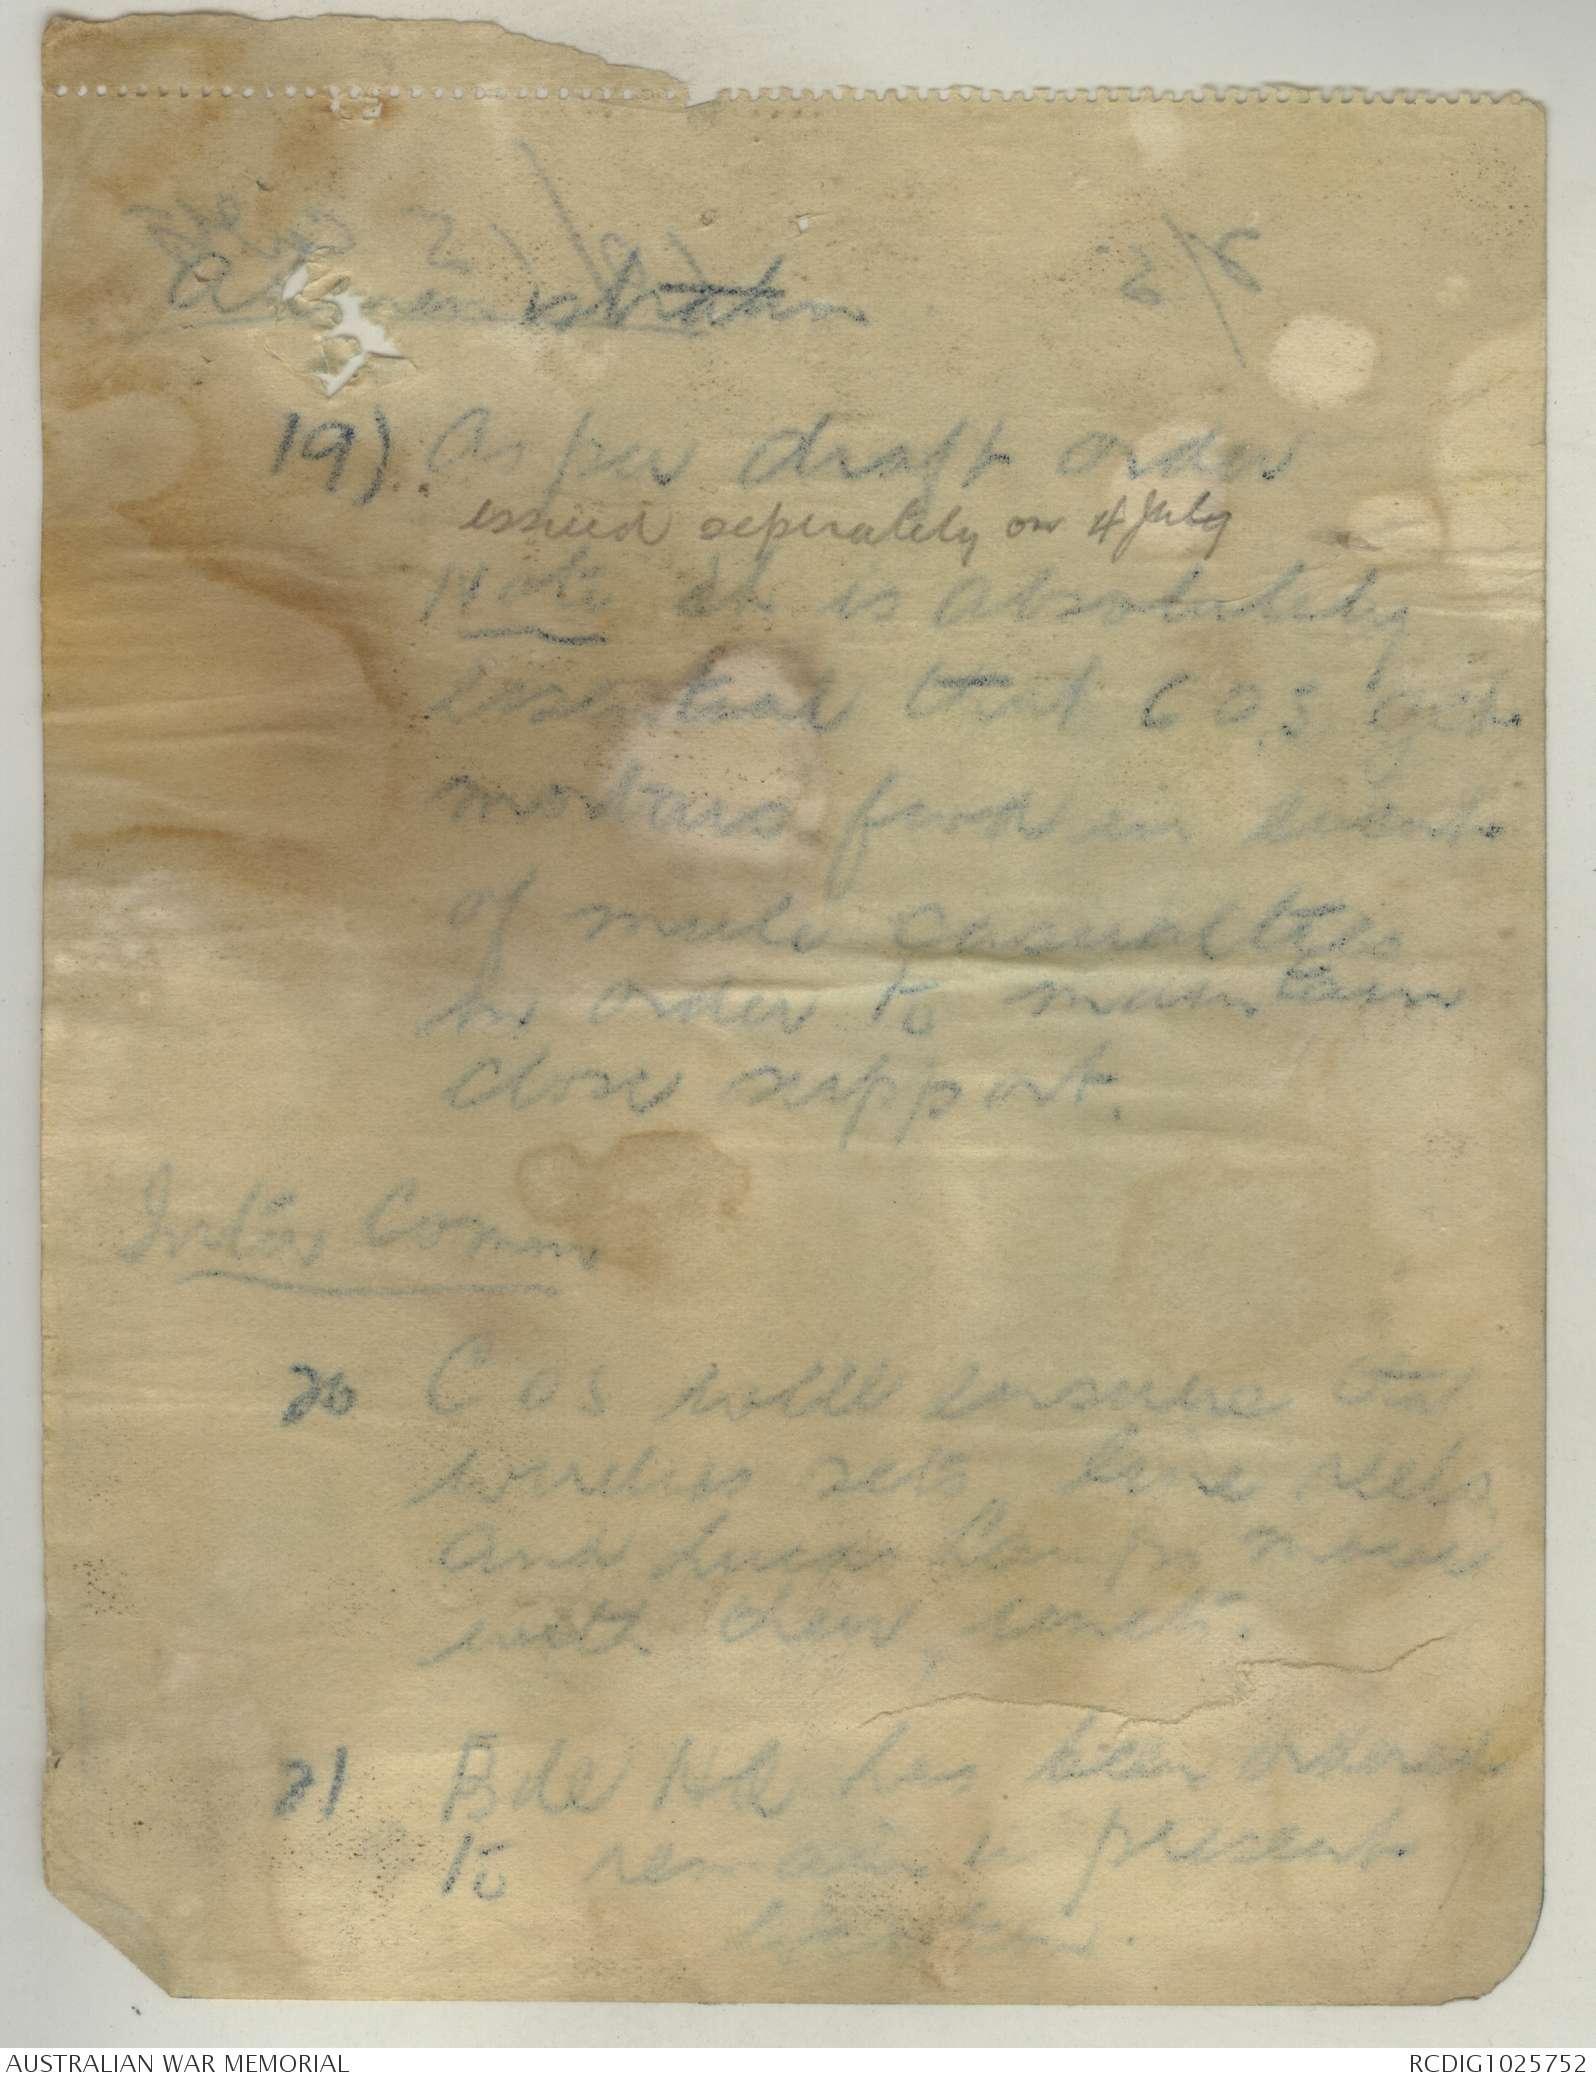 Administration
19) As per draft order
issued seperately on 4 July
Note It is absolutely
essential that COs get
mortars fwd in event
of mule casualties
in order to maintain
close support.
Inter Comm
20 COs will ensure that
wireless sets, line sets,
and lucas lamps move
with their units.
21 Bde HQ has been ordered
to remain in present
location.
AUSTRALIAN WAR MEMORIAL
RCDIG1025752